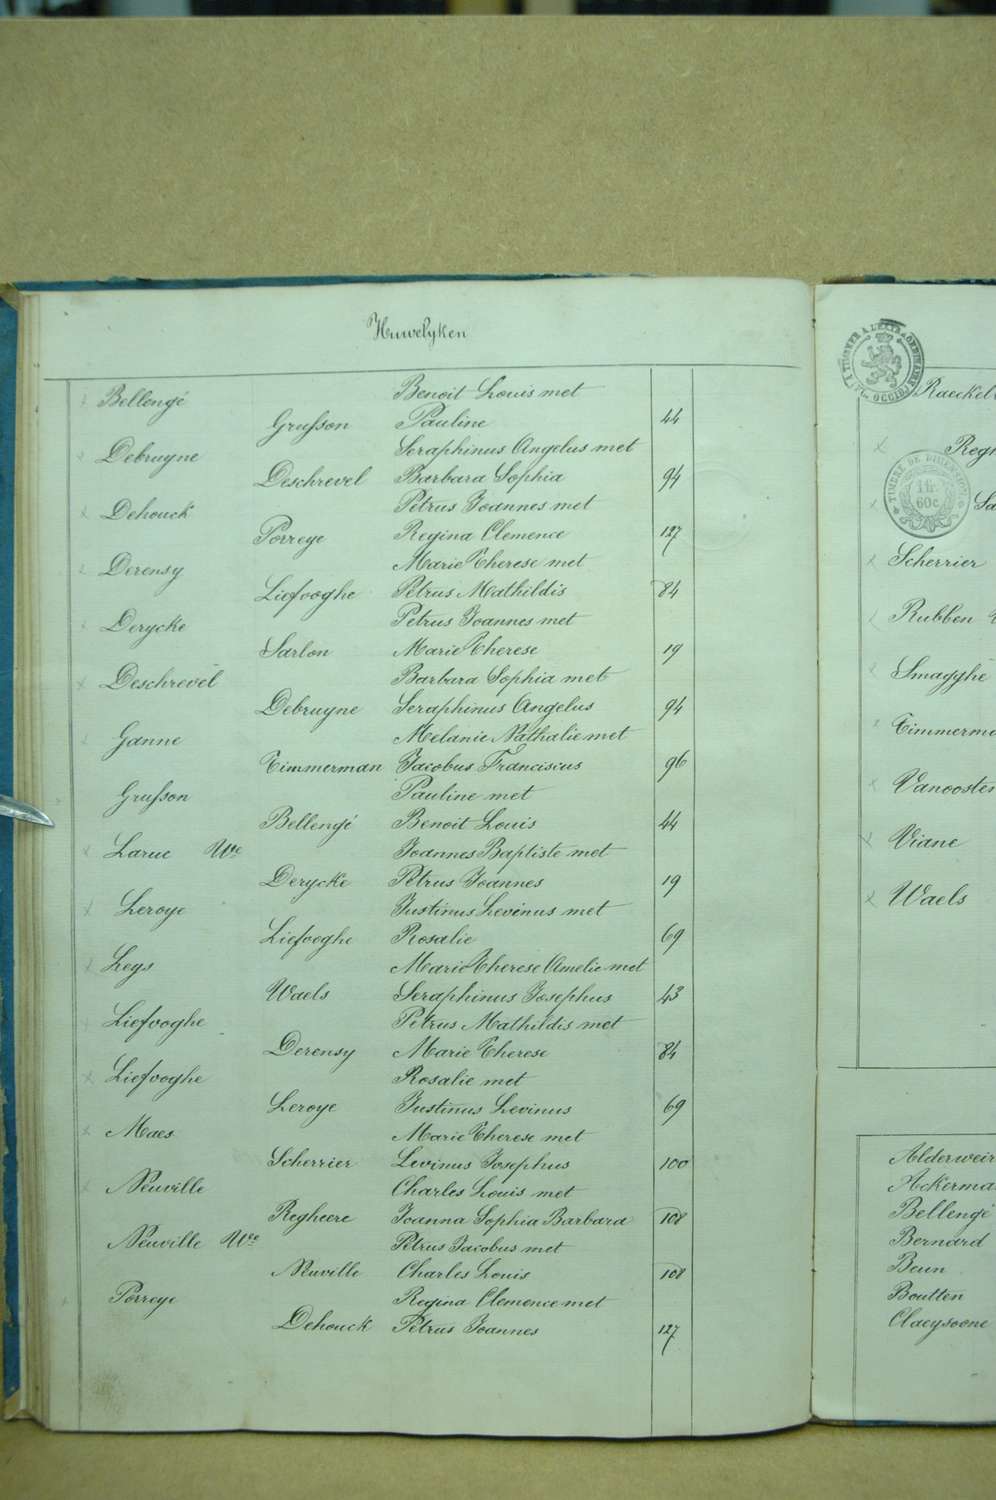 Huwelyken
Bellengé Benoit Louis met
Grufson Pauline 44
Debruyne Seraphinus Angelus met
Deschrevel Barbara Sophia 94
Dehouck Petrus Joannes met
Porreye Regina Clemence 127
Derensy Marie Therese met
Liefvooghe Petrus Mathildis 84
Derycke Petrus Joannes met
Sarlon Marie Therese 19
Deschrevel Barbara Sophia met
Debruyne Seraphinus Angelus 94
Ganne Melanie Nathalie met
Timmerman Jacobus Franciscus 96
Grufson Pauline met
Bellengé Benoit Louis 44
Larue Wce Joannes Baptiste met
Derycke Petrus Joannes 19
Leroye Justinus Levinus met
Liefvooghe Rosalie 69
Leys Marie Therese Amelie met
Waels Seraphinus Josephus 43
Liefvooghe Petrus Mathildis met
Derensy Marie Therese 84
Liefvooghe Rosalie met
Leroye Justinus Levinus 69
Maes Marie Therese met
Scherrier Levinus Josephus 100
Neuville Charles Louis met
Regheere Joanna Sophia Barbara 108
Neuville Wce Petrus Jacobus met
Neuville Charles Louis 108
Porreye Regina Clemence met
Dehouck Petrus Joannes 127
Raeckel
Reg
TIMBRE DE DIMENSION
1 fr.
60c.
Sa
Scherrier
Rubben
Smagghe
Timmerm
Vanooster
Viane
Waels
Alderweir
Ackerma
Bellengé
Bernard
Beun
Boutten
Claeysoone